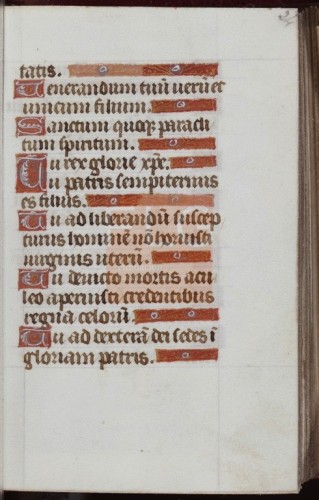 tatis.
Uenerandum tuū uerū et
unicum filium.
Sanctum quoqz paracli
tum spiritum.
Tu rex glorie xpē.
Tu patris sempiternus
es filius.
Tu ad liberandū suscep
turus hominē nō horruisti
uirginis uterū.
Tu deuicto mortis acu
leo aperuisti credentibus
regna celorū.
Tu ad dexterā dei sedes ī
gloriam patris.